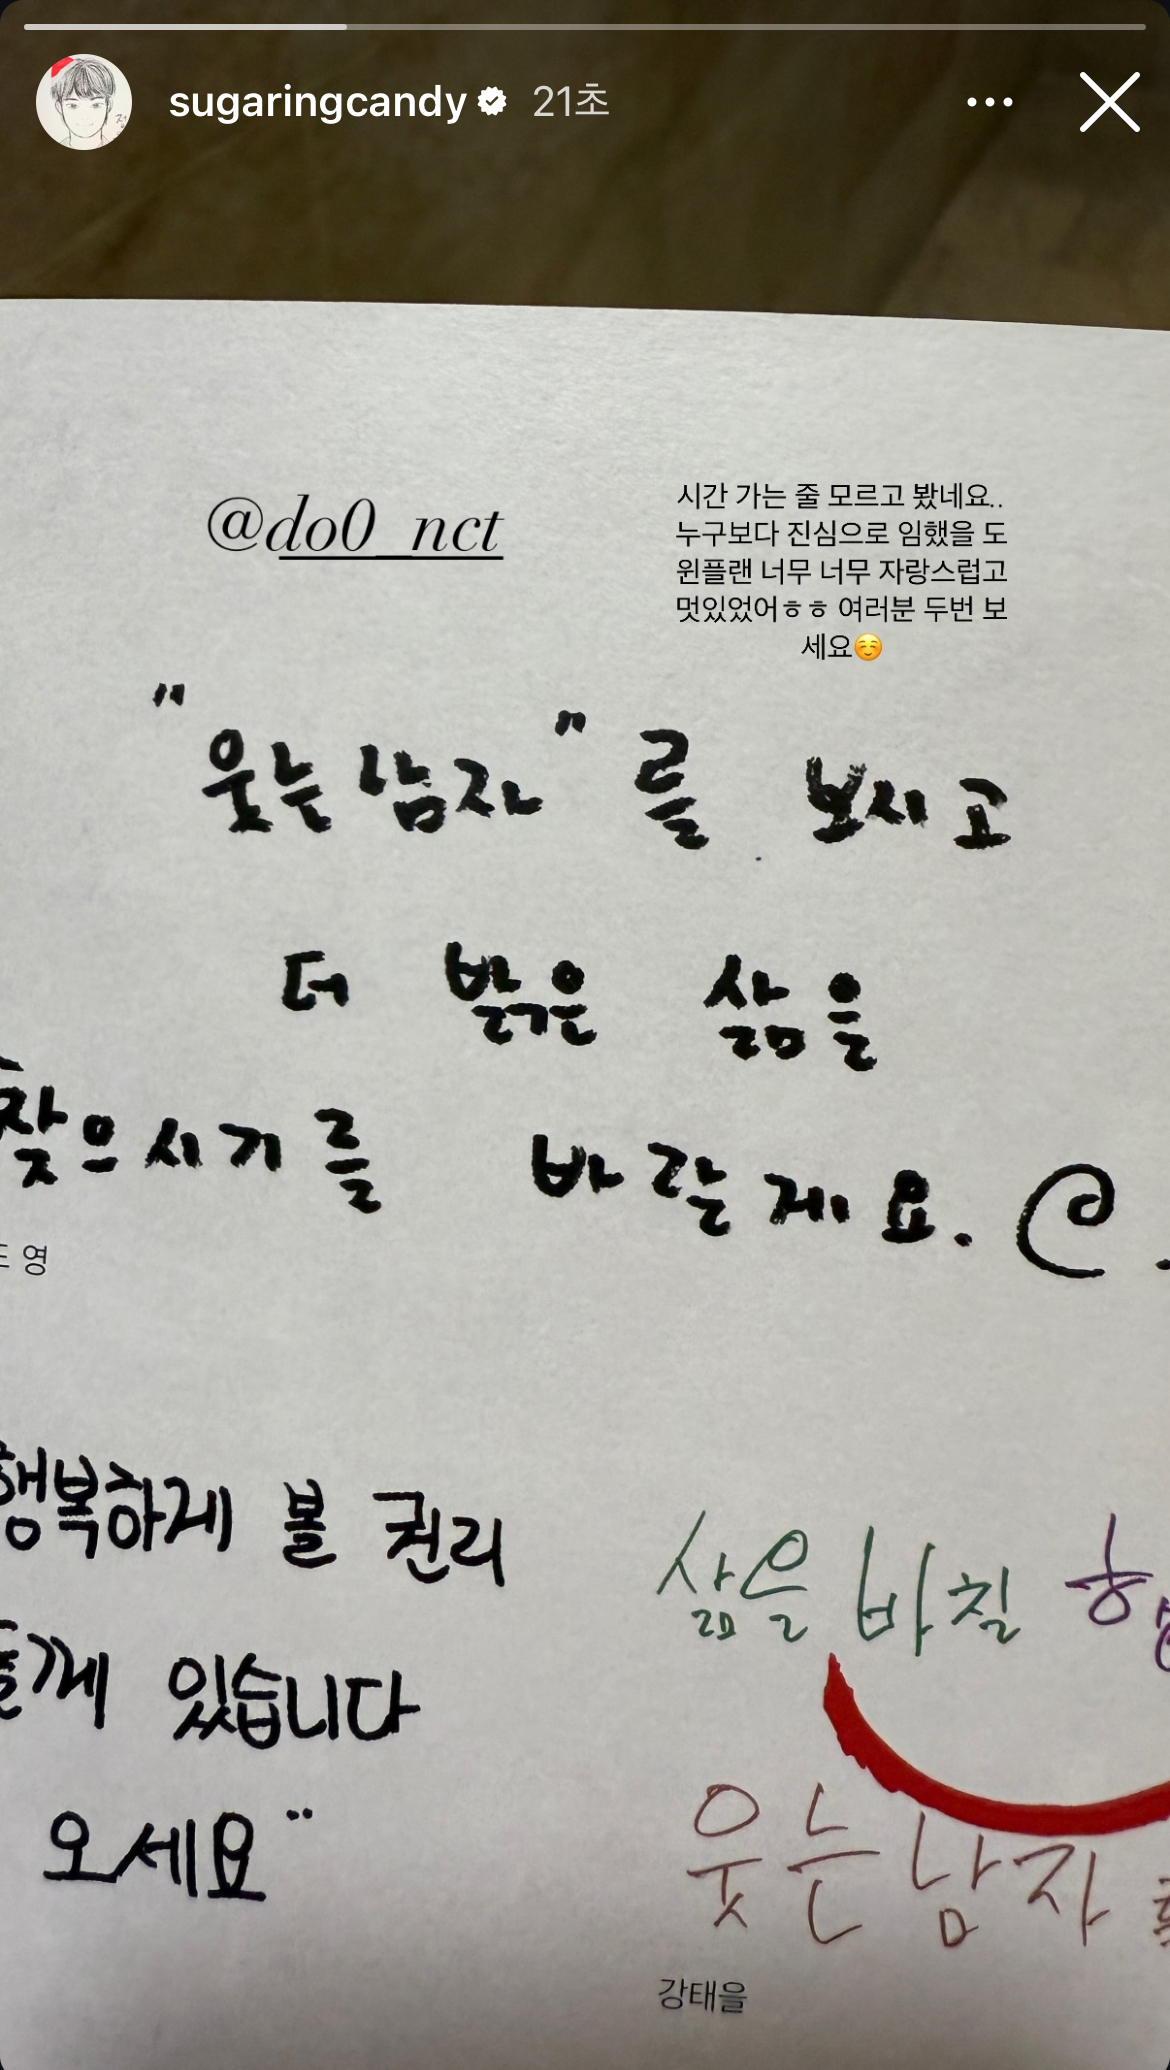 sugaringcandy 21초
@do0_nct
시간 가는 줄 모르고 봤네요..
누구보다 진심으로 임했을 도
윈플랜 너무 너무 자랑스럽고
멋있었어ㅎㅎ 여러분 두번 보
세요☺️
"웃는 남자"를 보시고
더 밝은 삶을
찾으시기를 바랄게요.
영
행복하게 볼 권리
있습니다
오세요¨
삶을 바칠
웃는 남자
강태을